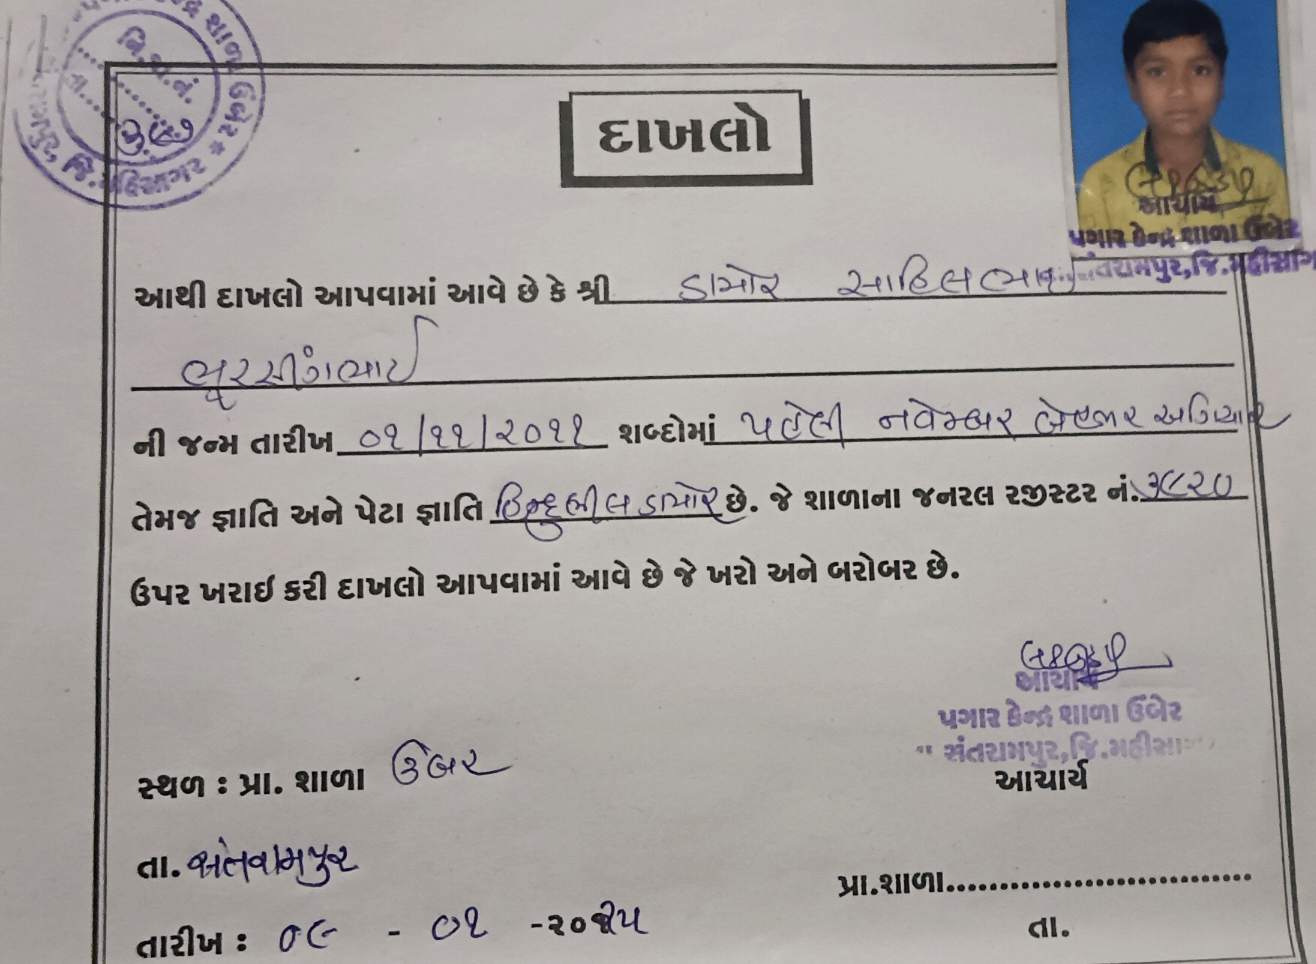 શાળા ઉંબેર *
જિ.મહિસાગર
મિ.
તા.
નં.
દાખલો
આચાર્ય
પગાર કેન્દ્ર શાળા ઉંબેર
સંતરામપુર,જિ.મહીસાગ
આથી દાખલો આપવામાં આવે છે કે શ્રી ડામોર સાહિલભાઈ
ભૂરસીંગભાઈ
ની જન્મ તારીખ ૦૧/૧૧/૨૦૧૧ શબ્દોમાં પહેલી નવેમ્બર બેહજાર અગિયાર
તેમજ જ્ઞાતિ અને પેટા જ્ઞાતિ હિન્દુ ભીલ ડામોર છે. જે શાળાના જનરલ રજીસ્ટર નં. ૩૯૨૦
ઉપર ખરાઈ કરી દાખલો આપવામાં આવે છે જે ખરો અને બરોબર છે.
આચાર્ય
પગાર કેન્દ્ર શાળા ઉંબેર
સંતરામપુર,જિ.મહીસા
સ્થળ : પ્રા. શાળા ઉંબેર
આચાર્ય
તા. સંતરામપુર
પ્રા.શાળા..............................
તારીખ : ૦૯ - ૦૧ -૨૦૨૫
તા.